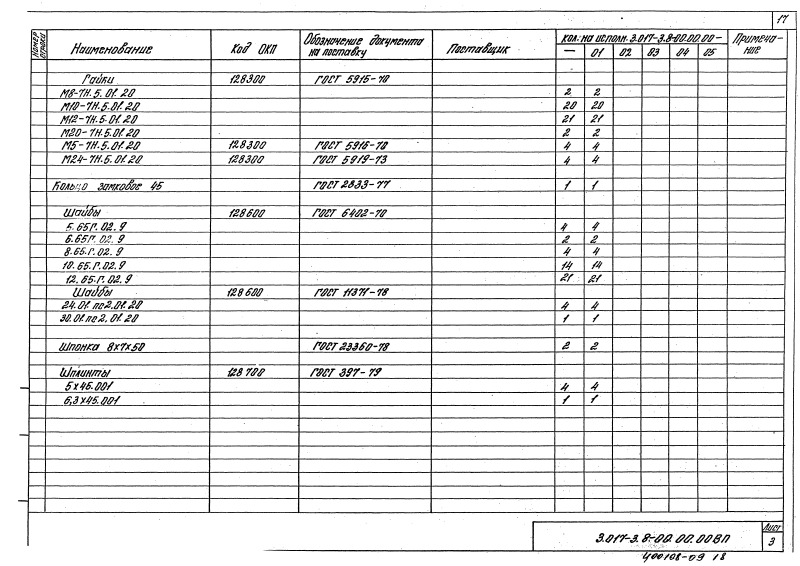 17
Номер строки | Наименование | Код ОКП | Обозначение документа на поставку | Поставщик | Кол. на исполн. 3.017-3.8-00.00.00- | Примечание
— | 01 | 02 | 03 | 04 | 05
Гайки | 128300 | ГОСТ 5915-70
М8-7Н.5.01.20 | 2 | 2
М10-7Н.5.01.20 | 20 | 20
М12-7Н.5.01.20 | 21 | 21
М20-7Н.5.01.20 | 2 | 2
М5-7Н.5.01.20 | 128300 | ГОСТ 5916-70 | 4 | 4
М24-7Н.5.01.20 | 128300 | ГОСТ 5919-73 | 4 | 4
Кольцо замковое 45 | ГОСТ 2833-77 | 1 | 1
Шайбы | 128600 | ГОСТ 6402-70
5.65Г.02.9 | 4 | 4
6.65Г.02.9 | 2 | 2
8.65.Г.02.9 | 4 | 4
10.65.Г.02.9 | 14 | 14
12.65.Г.02.9 | 21 | 21
Шайбы | 128600 | ГОСТ 11371-78
24.01.пс2.01.20 | 4 | 4
30.01.пс2.01.20 | 1 | 1
Шпонка 8х7х50 | ГОСТ 23360-78 | 2 | 2
Шплинты | 128700 | ГОСТ 397-79
5х45.001 | 4 | 4
6,3х45.001 | 1 | 1
3.017-3.8-00.00.00ВП
Лист
3
Ц00108-09 18